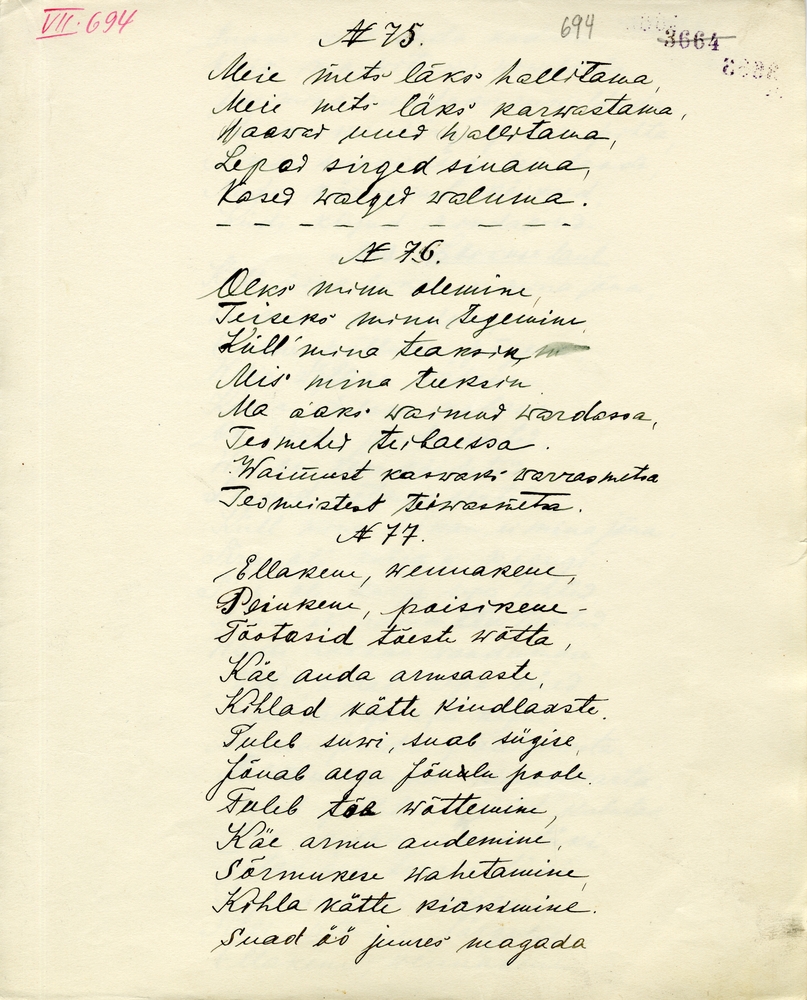 VII. 694
694
3664
N 75.
Meie mets läks hallitama,
Meie mets läks karwastama,
Haawad uued hallitama,
Lepad sirged sinama,
Kased walged waluma.
N 76.
Oleks minu olemine,
Teiseks minu tegemine
Küll mina teaksin,
Mis mina teeksin
Ma aaks waimud wardassa,
Teomehed teibaessa.
Waimust kaswaks warrasmetsa
Teomeistest teiwasmetsa.
N 77.
Ellakene, wennakene,
Peiukene, poisikene -
Tõotasid tõeste wõtta,
Käe anda armsaaste,
Kihlad kätte kindlaaste.
Tuleb suwi, suab sügise,
Jõuab aega Jõulu poole.
Tuleb tõe wõttemine,
Käe armu andemine,
Sõrmukese wahetamine,
Kihla kätte kiakimine.
Suad öö juures magada